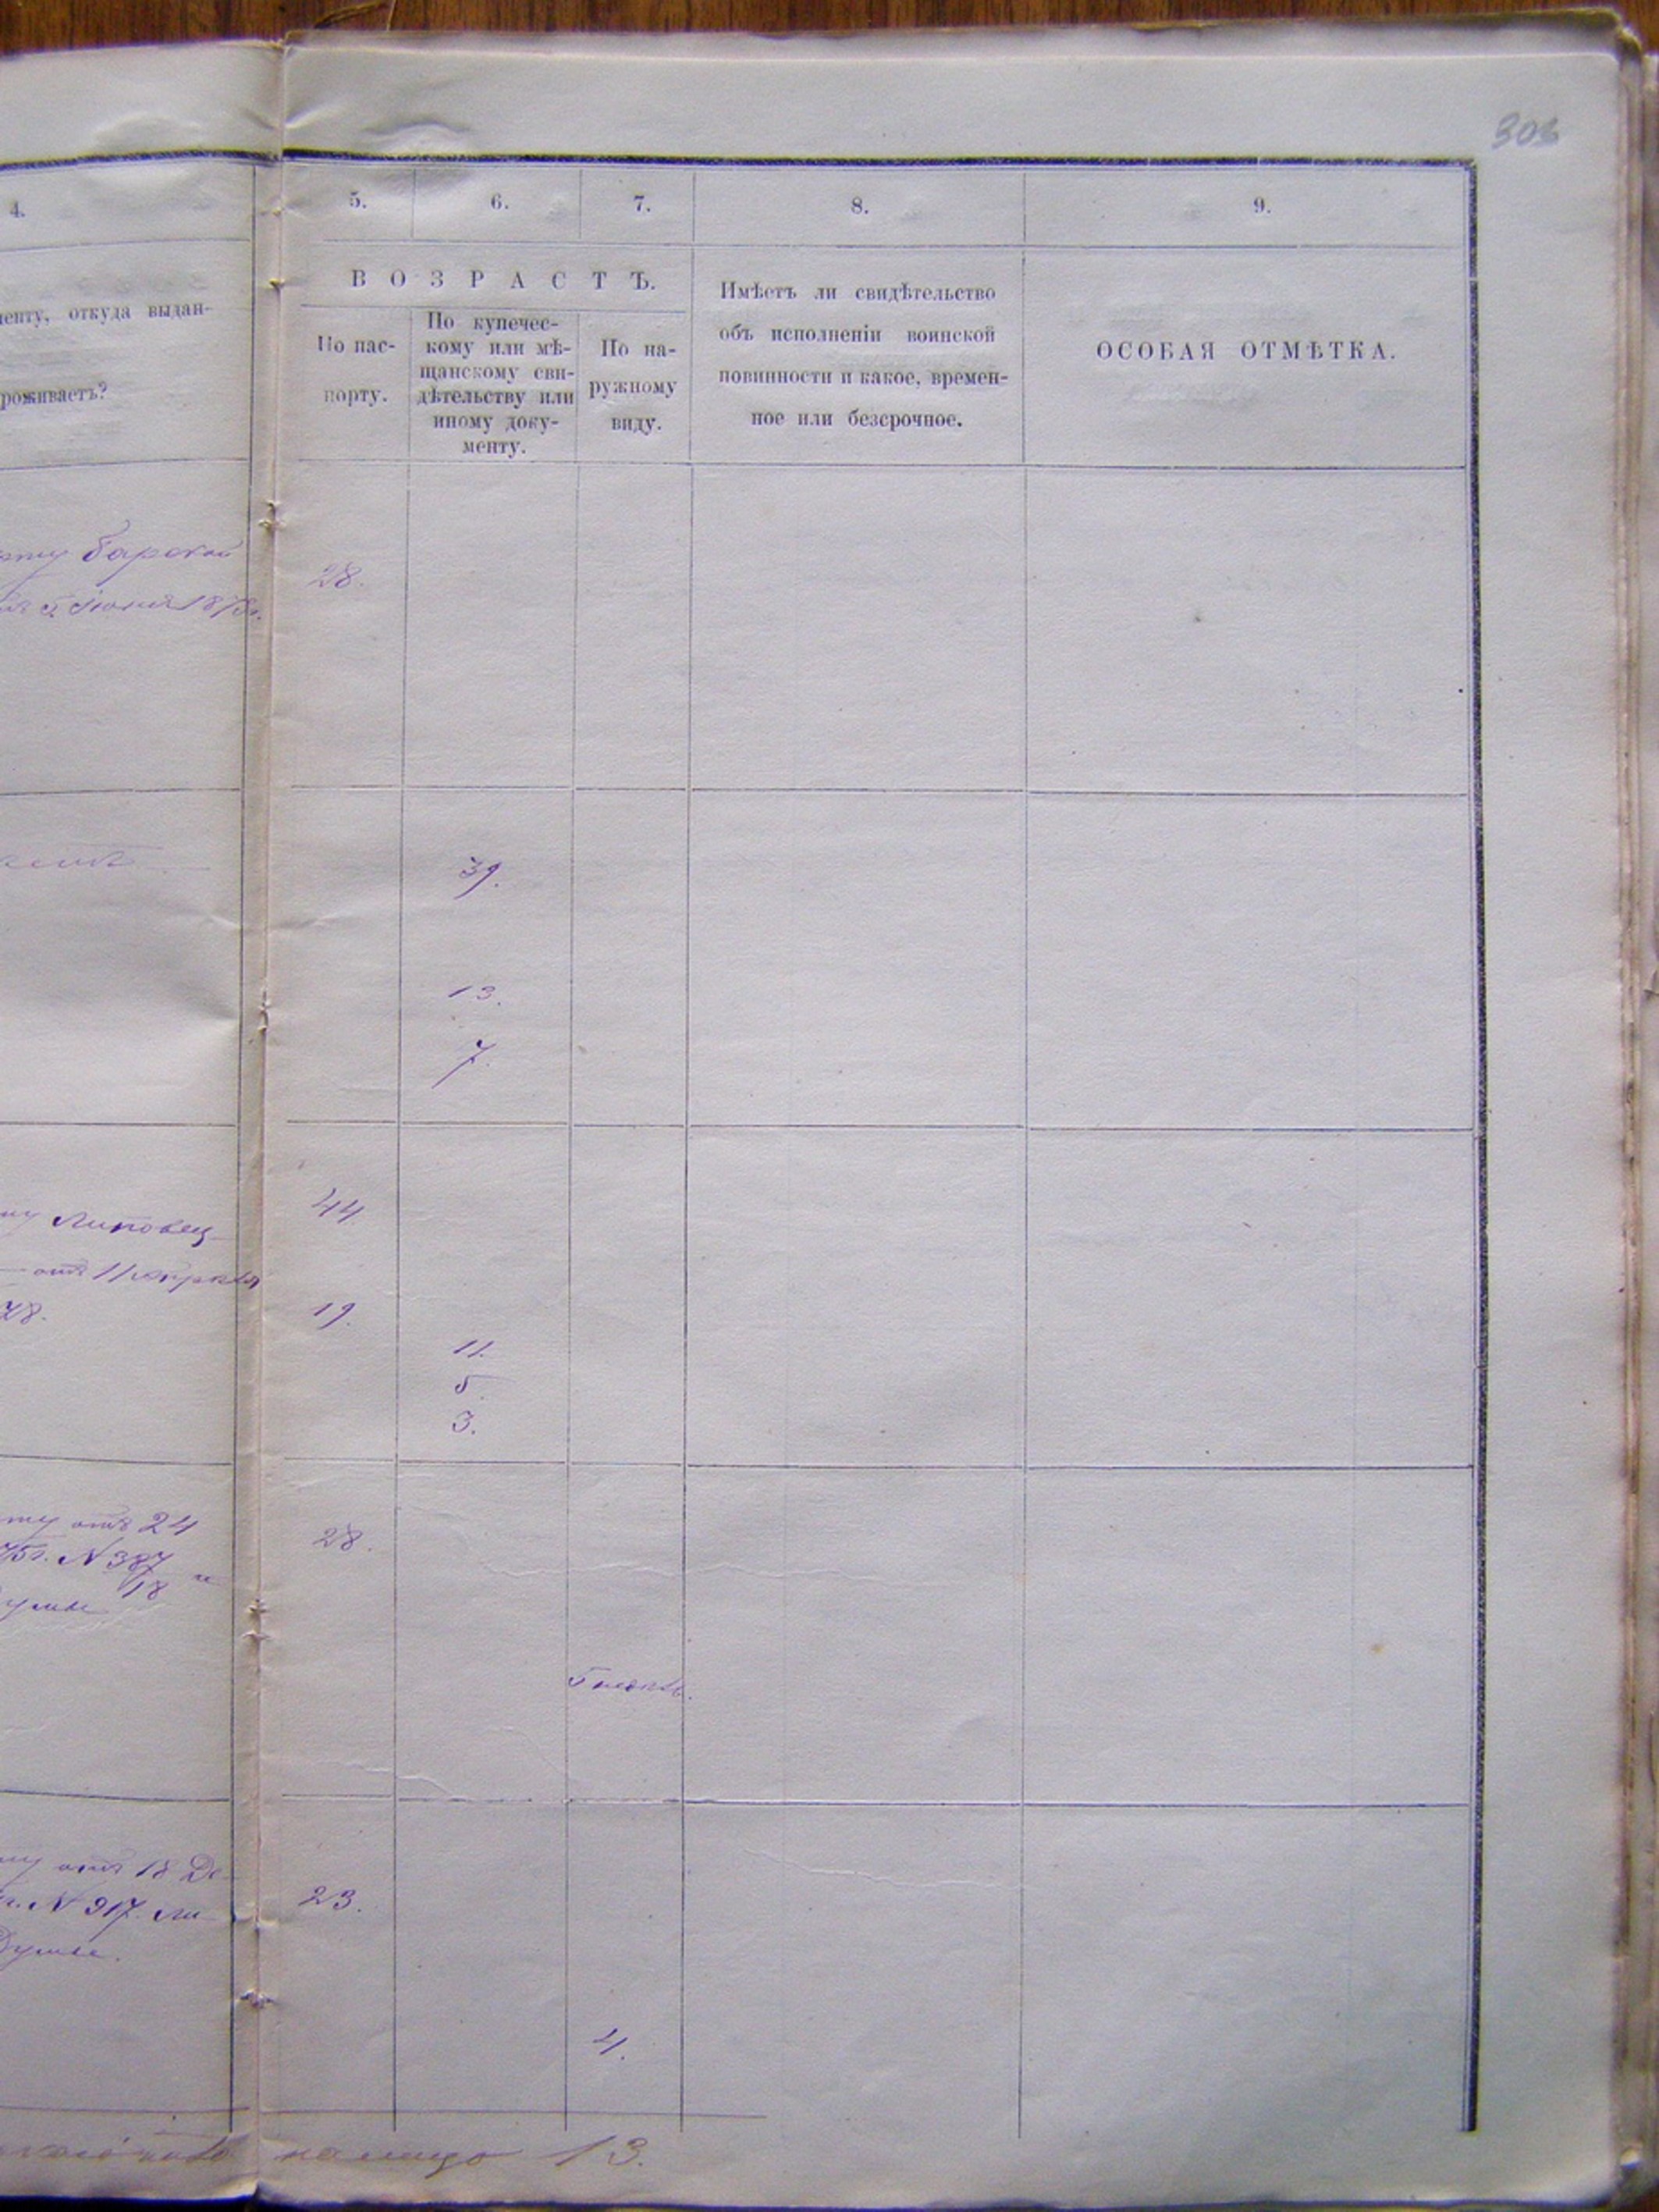 303
4. 5. 6. 7. 8. 9.
менту, откуда выдан-
роживаетъ?
ВОЗРАСТЪ.
По пас-
порту.
По купечес-
кому или мѣ-
щанскому сви-
дѣтельству или
иному доку-
менту.
По на-
ружному
виду.
Имѣетъ ли свидѣтельство
объ исполненіи воинской
повинности и какое, времен-
ное или безсрочное.
ОСОБАЯ ОТМѢТКА.
Барской
5 Іюня 1878г.
28.
39.
13.
7.
Липовец
отъ 11
78.
44.
19.
11.
5.
3.
ту отъ 24
75г. N 387 и
18
Думы
28.
5 мѣсяц.
отъ 18 Де-
г. N 917. Ли-
Думы.
23.
4.
налицо 13.